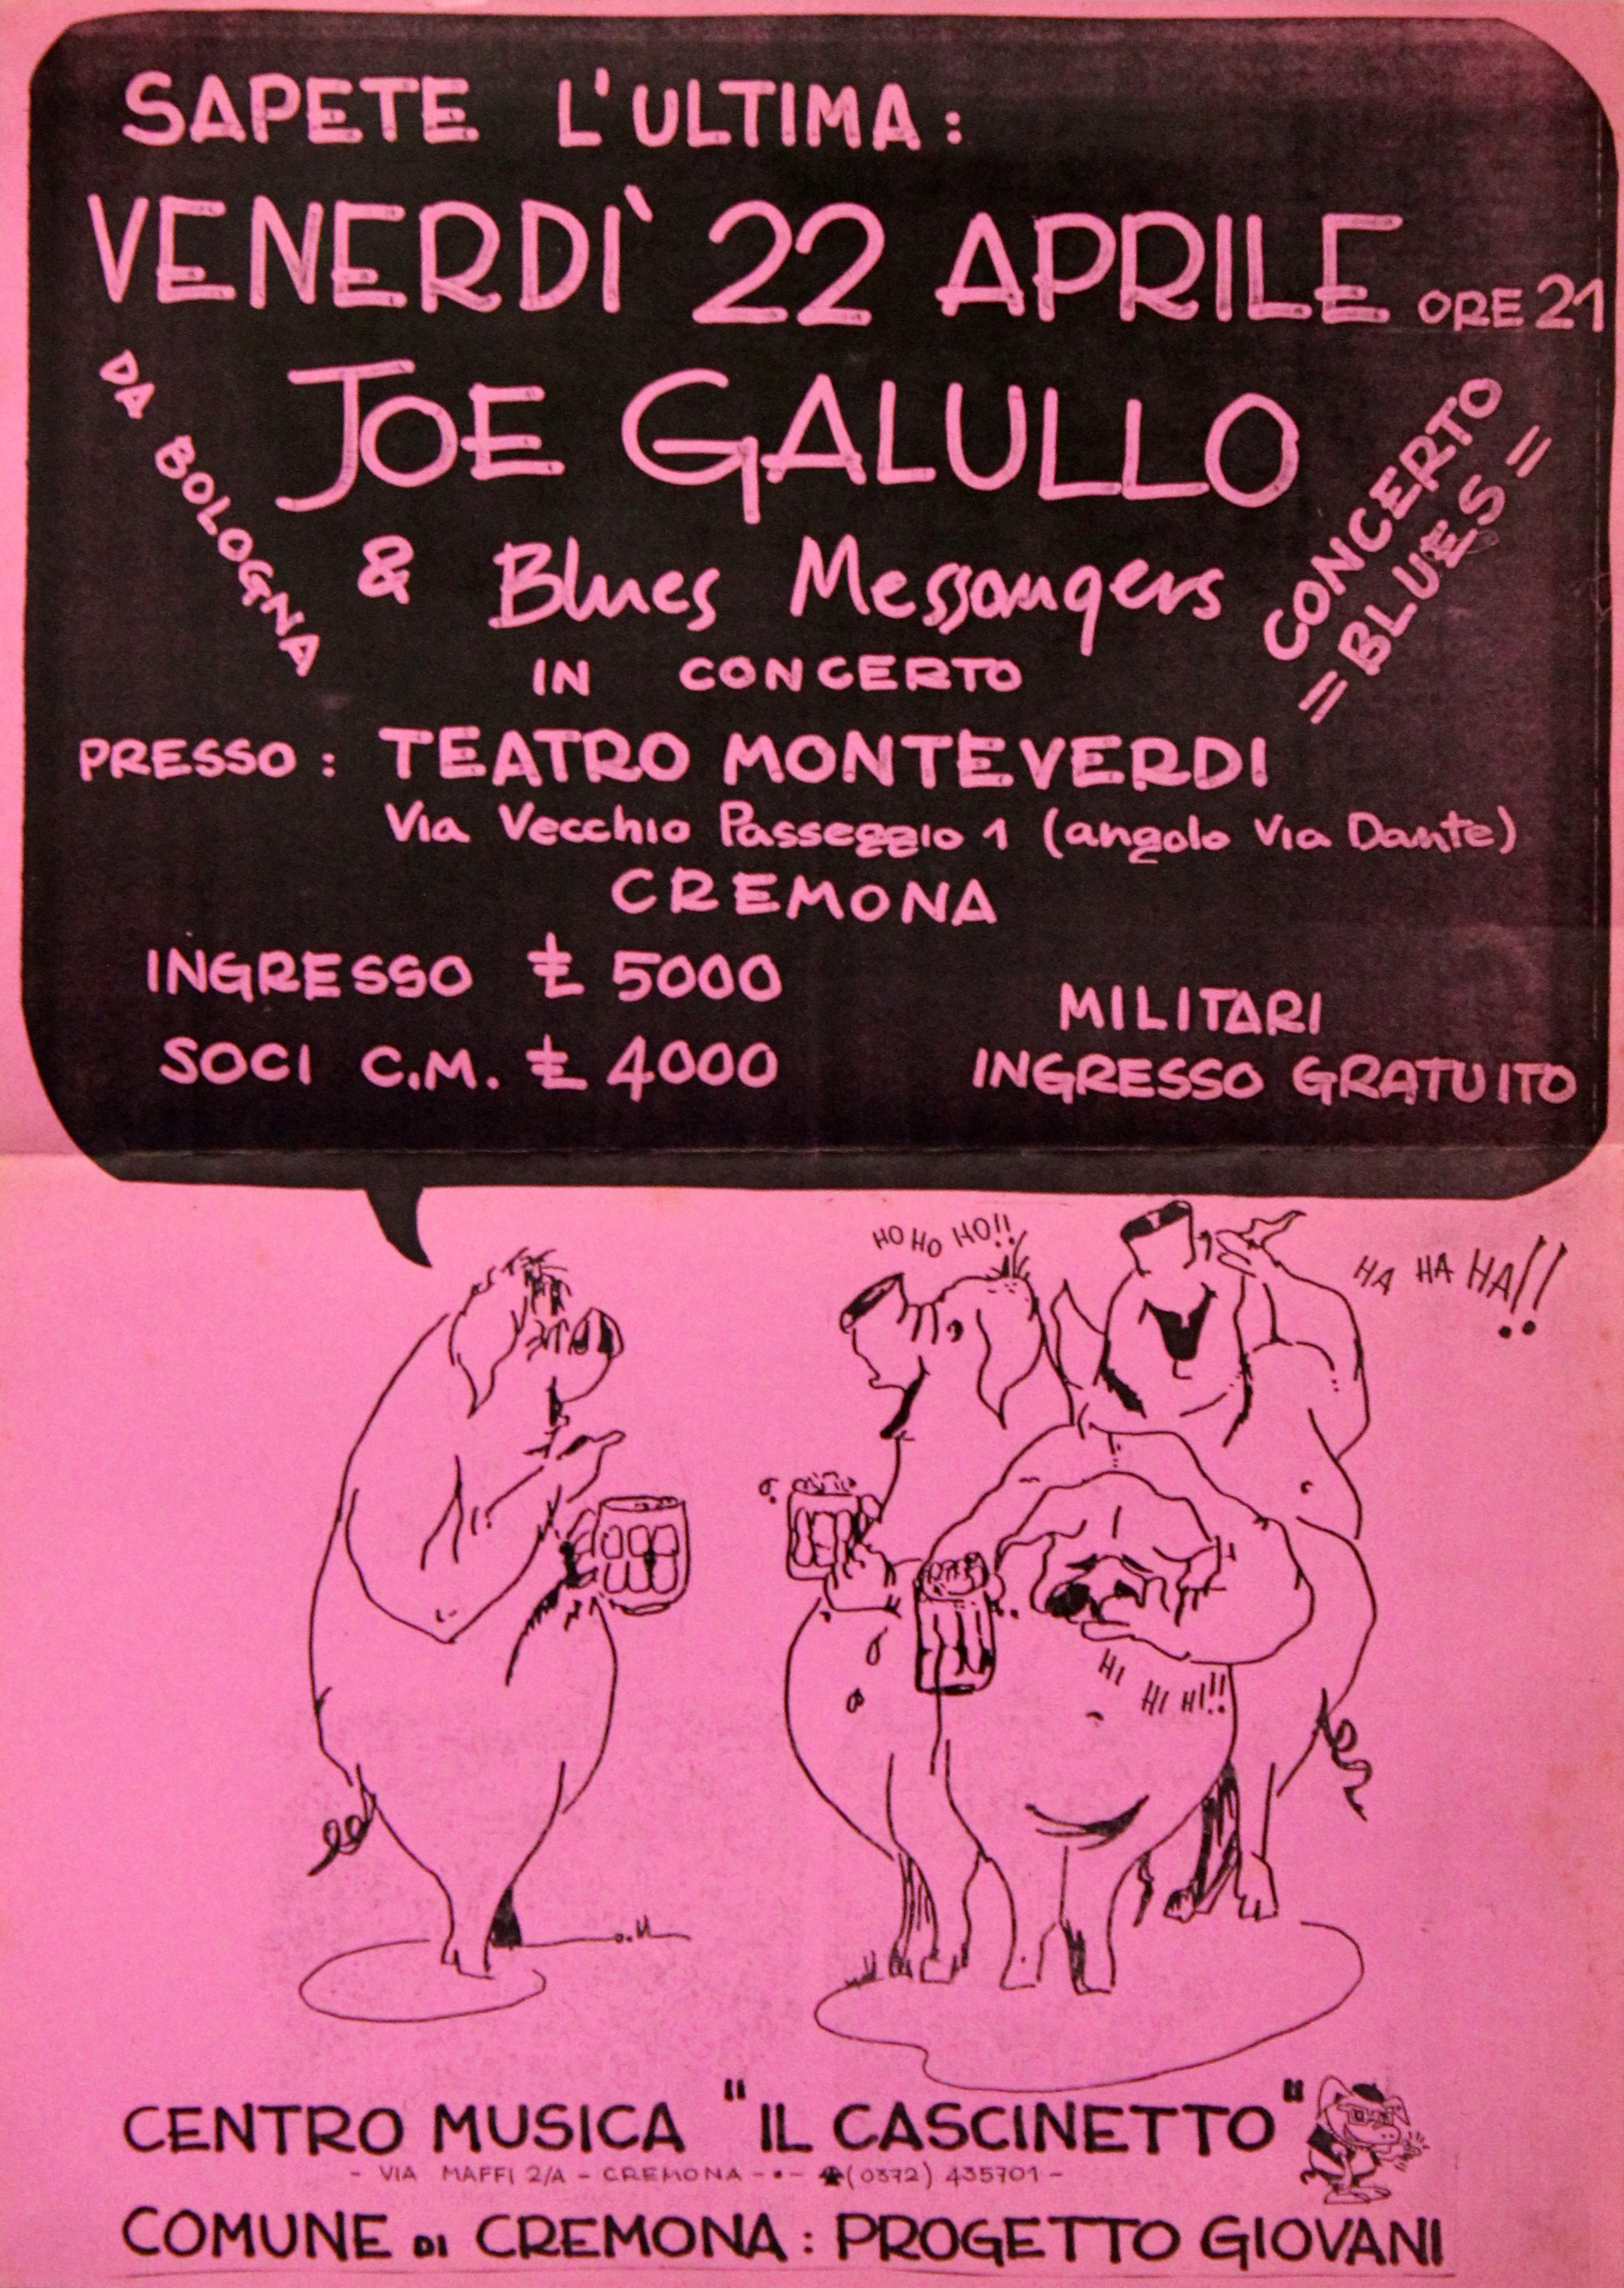 SAPETE L'ULTIMA:
VENERDÌ 22 APRILE ORE 21
DA BOLOGNA
JOE GALULLO
& Blues Messangers
CONCERTO
=BLUES=
IN CONCERTO
PRESSO: TEATRO MONTEVERDI
Via Vecchio Passeggio 1 (angolo Via Dante)
CREMONA
INGRESSO £ 5000
SOCI C.M. £ 4000
MILITARI
INGRESSO GRATUITO
HO HO HO!!
HA HA HA!!
HI
HI HI!!
CENTRO MUSICA "IL CASCINETTO"
- VIA MAFFI 2/A - CREMONA -•- ☎(0372) 435701-
COMUNE DI CREMONA: PROGETTO GIOVANI